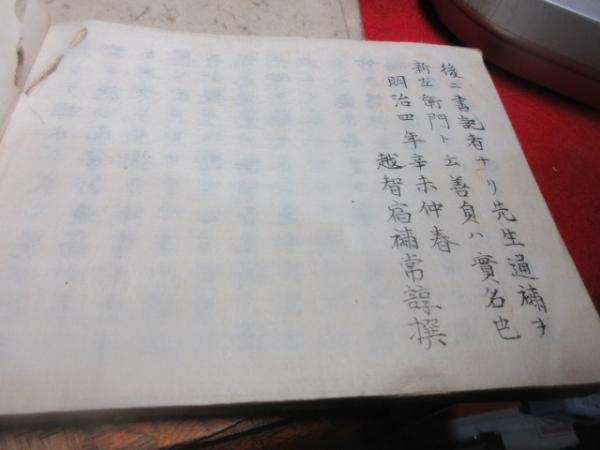 後ニ書記者ナリ先生通禰ヲ
新左衛門ト云善負ハ實名也
明治四年辛未仲春
越智宿禰常諄撰